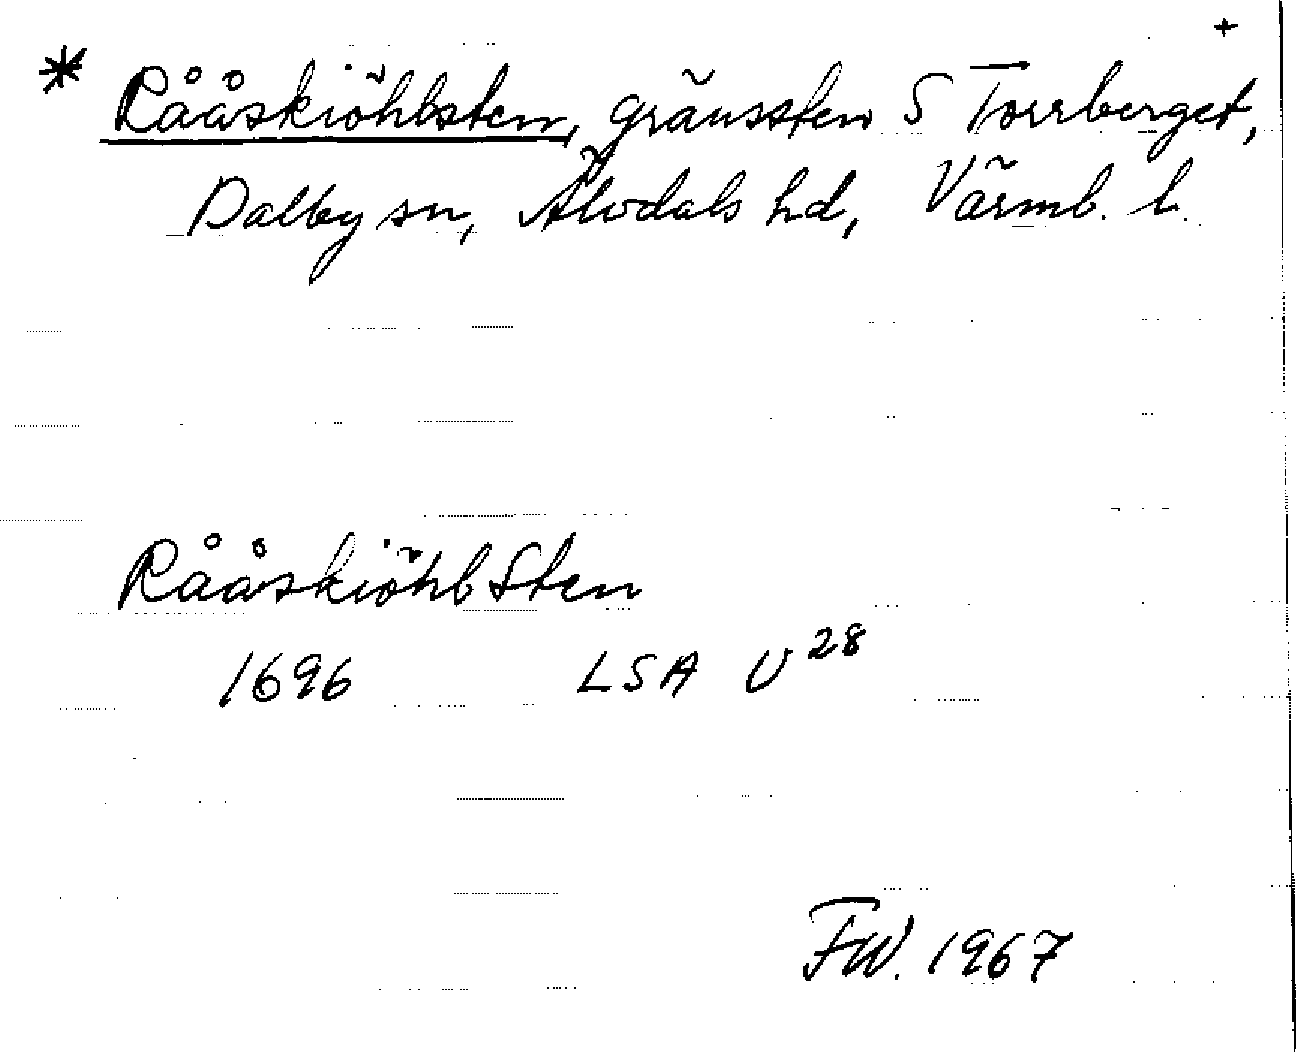 +
* Rååskiöhlsten, gränssten S Torrberget,
Dalby sn, Älvdals hd, Värml. l.
Rååskiöhl Sten
1696 LSA U28
FW. 1967